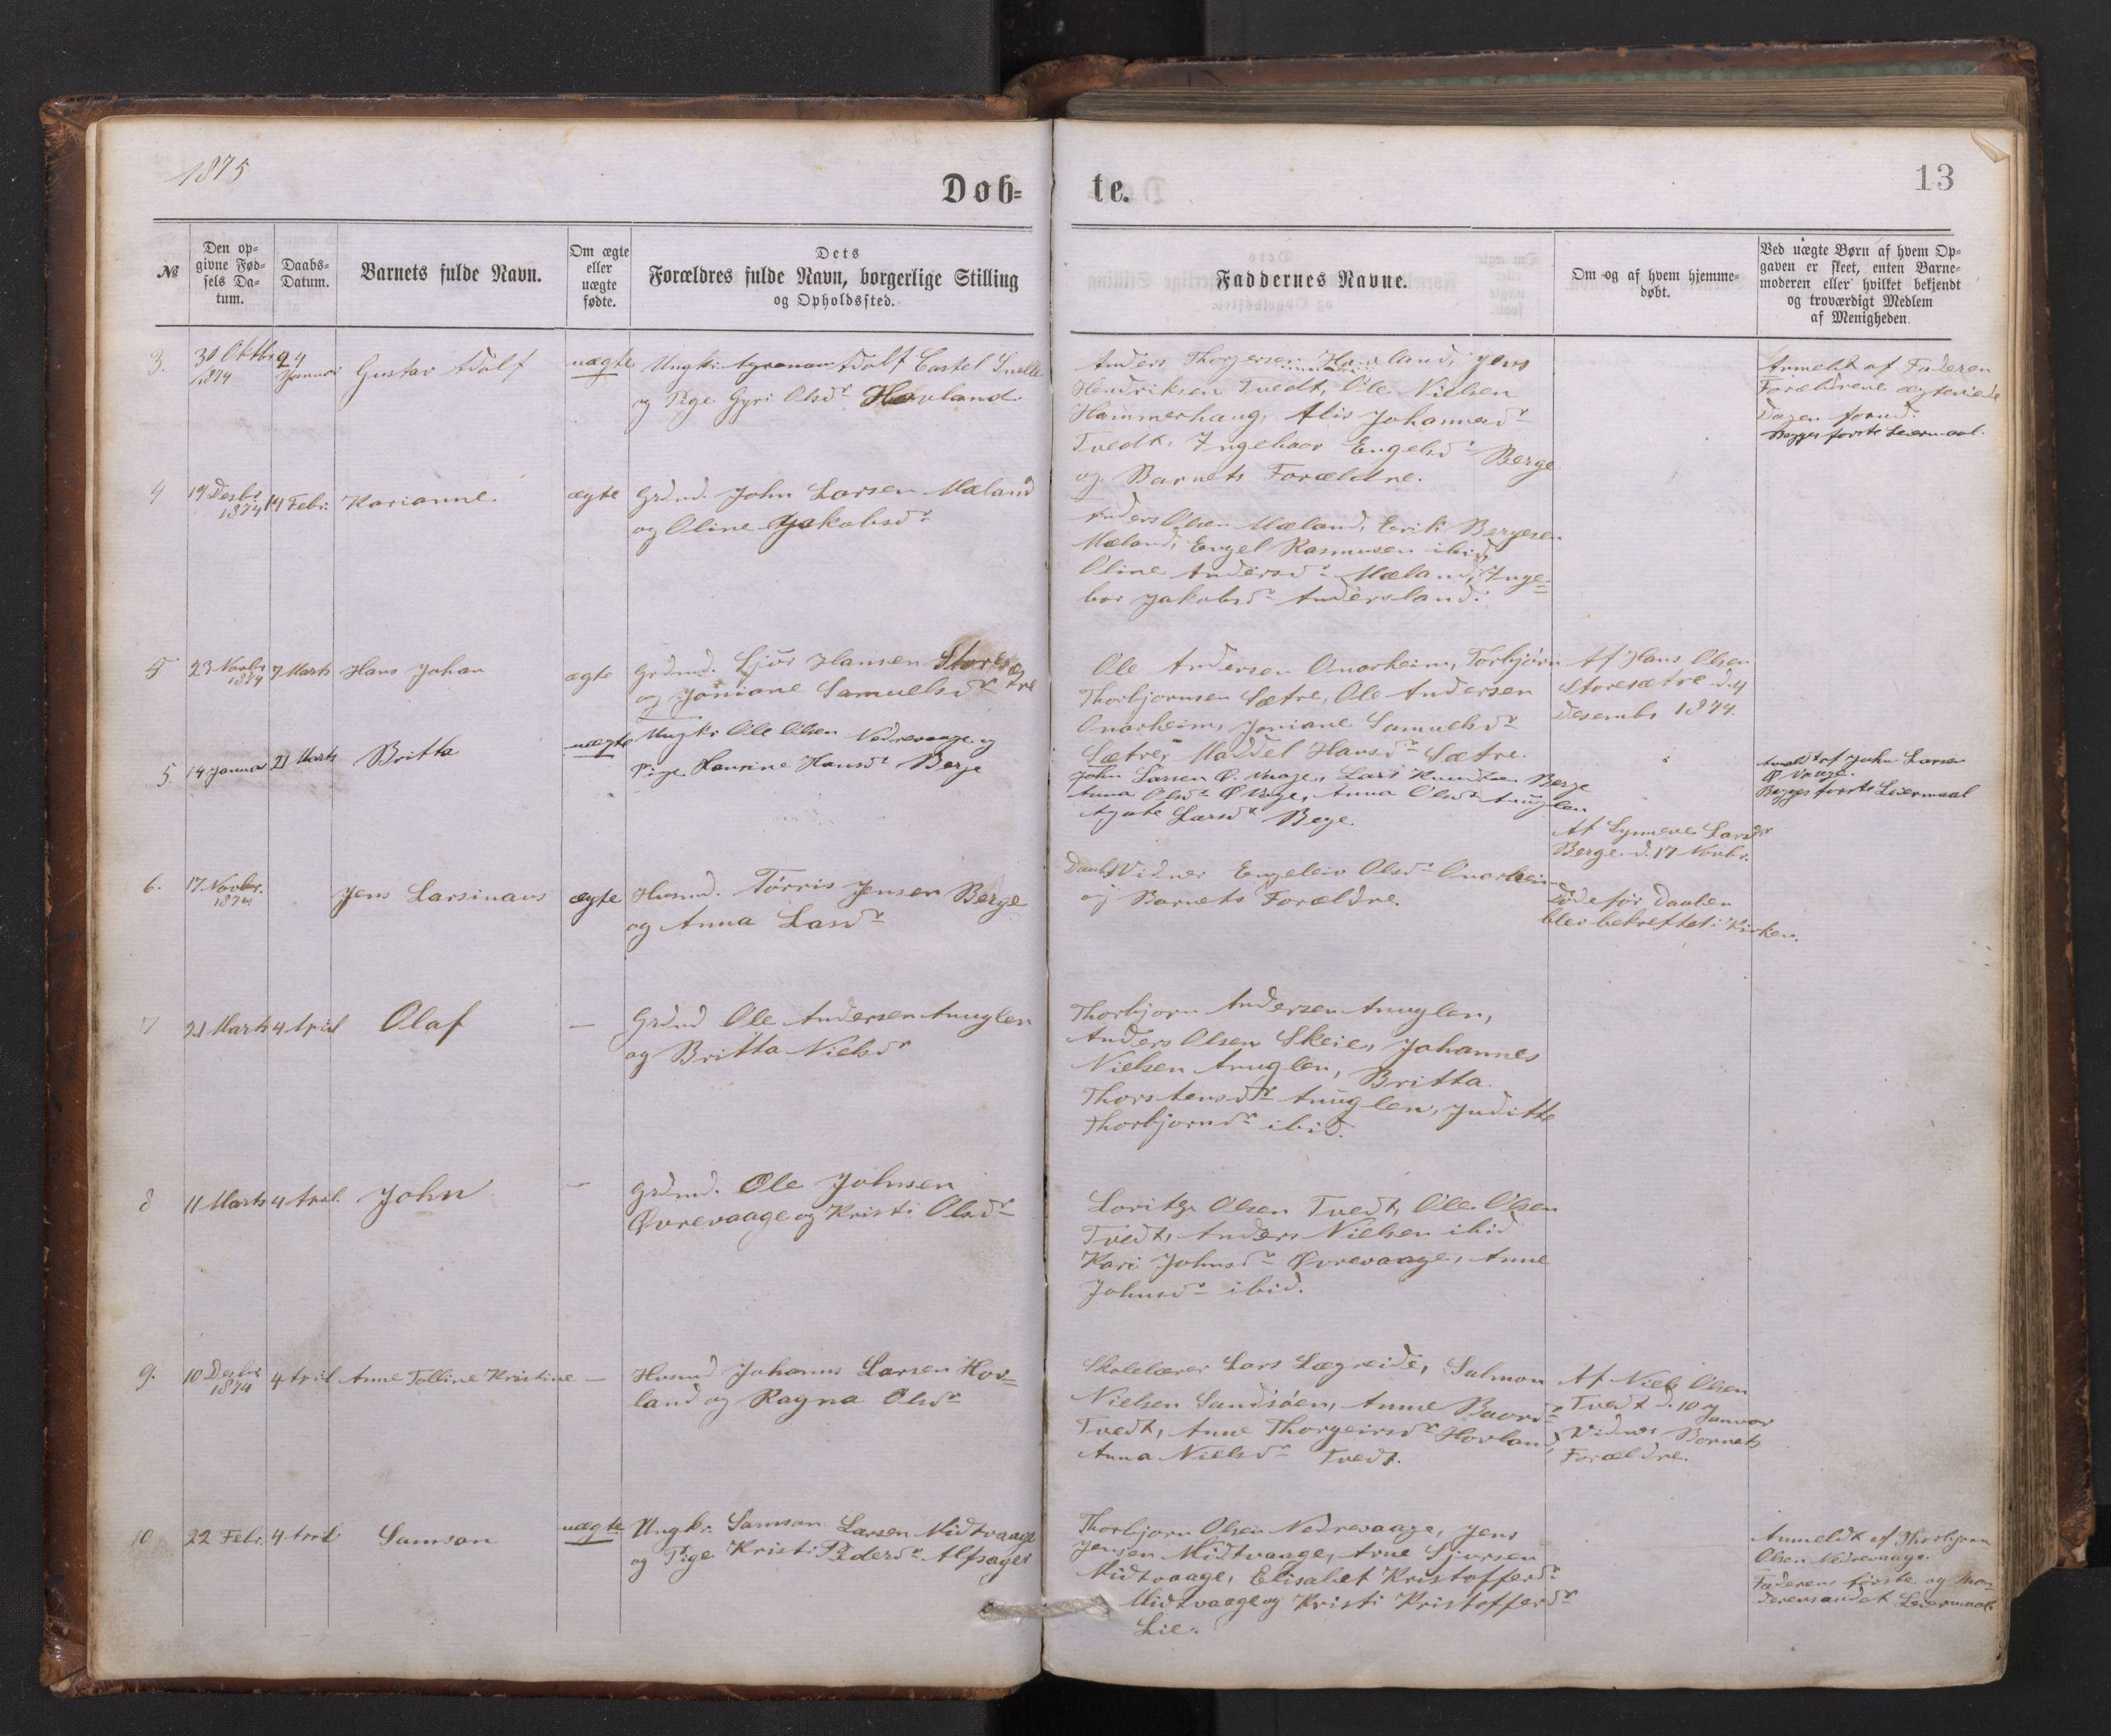 1875
Døb-
te.
13
№
Den op-
givne Fød-
sels Da-
tum.
Daabs-
Datum.
Barnets fulde Navn.
Om ægte
eller
uægte
fødte.
Dets
Forældres fulde Navn, borgerlige Stilling
og Opholdssted.
Faddernes Navne.
Om og af hvem hjemme-
døbt.
Ved uægte Børn af hvem Op-
gaven er skeet, enten Barne-
moderen eller hvilket bekjendt
og troværdigt Medlem
af Menigheden.
3.
30 Oktbr
1874
24
Januar
Gustav Adolf
uægte
Ungkr. Agronom Adolf Castel Snelle
og Pige Gyri Olsdr Hovland
Anders Thorgersen Hovland, Jens
Hendriksen Tvedt, Ole Nielsen
Hammerhaug, Alis Johannesdr
Tvedt, Ingeboor Engelsdr Berge
og Barnets Forældre.
Anmeldt af Faderen
Forældrene ægteviede
Dagen forud.
Begges første Leiermaal.
4
19 Desbr
1874
14 Febr.
Karianne
ægte
Grdmd. John Larsen Mæland
og Oline Jakobsdr
Anders Olsen Mæland, Erik Bergesen
Mæland, Engel Rasmusen ibid,
Oline Andersdr Mæland, Inge-
bor Jakobsdr Andersland.
5
23 Novbr
1874
7 Marts
Hans Johan
ægte
Grdmd. Sjur Hansen Storesætre
og Joniane Samuelsdr
Ole Andersen Onarheim, Torbjørn
Thorbjørnsen Sætre, Ole Andersen
Onarheim, Joniane Samuelsdr
Sætre, Maldel Hansdr Sætre.
Af Hans Olsen
Storesætre d. 4
Desembr 1874.
5
14 Januar
21 Marts
Britta
uægte
Ungkr Ole Olsen Nedrevaage og
Pige Laurine Hansdr Berge
John Larsen Ø. Vaage, Lars Knudsen Berge
Anna Olsdr Ø Vage, Anna Olsdr Anuglen
Agate Larsdr Bege.
Anmeldt af John Larsen
Ø Vaage.
Begges første Leiermaal
6.
17 Novbr.
1874
Jens Larsinaus
ægte
Husmd. Tørris Jensen Berge
og Anna Lasdr
Daabs Vidner Engeleiv Olsdr Onarheim
og Barnets Forældre.
Af Synneve Larsdr
Berge d. 17 Novbr.
Døde før Daaben
blev bekreftet i Kirken.
7
21 Marts
4 April
Olaf
—
Grdmd Ole Andersen Anuglen
og Britta Nielsdr
Thorbjørn Andersen Anuglen,
Anders Olsen Skeie, Johannes
Nielsen Anuglen, Britta
Thorstensdr Anuglen, Juditte
Thorbjørnsdr ibid.
8
11 Marts
4 April.
John
—
Grdmd. Ole Johnsen
Øvrevaage og Kristi Olsdr
Loritz Olsen Tvedt, Ole Olsen
Tvedt, Anders Nielsen ibid
Kari Johnsdr Øvrevaage, Anne
Johnsdr ibid.
9.
10 Desbr
1874
4 April
Anne Tolline Kristine
—
Husmd Johannes Larsen Hov-
land og Ragna Olsdr
Skolelærer Lars Lægreide, Salmon
Nielsen Sandsøen, Anne Baardr
Tvedt, Anne Thorgeirsdr Hovland,
Anna Nielsdr Tvedt.
Af Niels Olsen
Tvedt d. 10 Januar
Vidner Barnets
Forældre.
10
22 Febr.
4 April
Samson
uægte
Ungkr. Samson Larsen Midtvaage
og Pige Kristi Pedersdr Alfsager
Thorbjørn Olsen Nedrevaage, Jens
Jensen Midtvaage, Arne Sjursen
Midtvaage, Elisabet Kristoffersdr
Midtvaage og Kristi Kristoffersdr
Lie.
Anmeldt af Thorbjørn
Olsen Nedrevaage.
Faderens første og Mo-
derens andet Leiermaal.